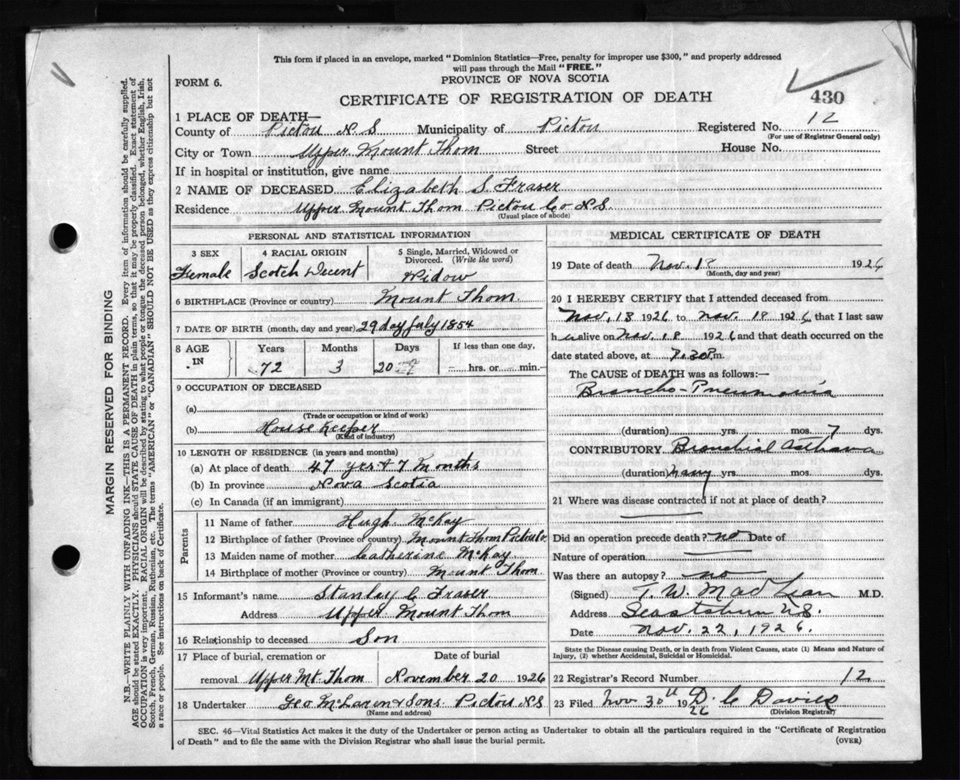 This form if placed in an envelope, marked "Dominion Statistics—Free, penalty for improper use $300," and properly addressed
will pass through the Mail "FREE."
FORM 6.
PROVINCE OF NOVA SCOTIA
CERTIFICATE OF REGISTRATION OF DEATH
430
1 PLACE OF DEATH—
County of Pictou N S Municipality of Pictou Registered No. 12
(For use of Registrar General only)
City or Town Upper Mount Thom Street House No.
If in hospital or institution, give name
2 NAME OF DECEASED Elizabeth S. Fraser
Residence Upper Mount Thom Pictou Co N.S.
(Usual place of abode)
PERSONAL AND STATISTICAL INFORMATION
3 SEX Female
4 RACIAL ORIGIN Scotch Decent
5 Single, Married, Widowed or
Divorced. (Write the word)
Widow
6 BIRTHPLACE (Province or country) Mount Thom
7 DATE OF BIRTH (month, day and year) 29 day July 1854
8 AGE IN Years 72 Months 3 Days 20
If less than one day,
hrs. or min.
9 OCCUPATION OF DECEASED
(a)
(Trade or occupation or kind of work)
(b) House Keeper
(Kind of industry)
10 LENGTH OF RESIDENCE (in years and months)
(a) At place of death 47 yers 7 Months
(b) In province Nova Scotia
(c) In Canada (if an immigrant)
Parents
11 Name of father Hugh McKay
12 Birthplace of father (Province or country) Mount Thom Pictou Co
13 Maiden name of mother Catherine McKay
14 Birthplace of mother (Province or country) Mount Thom
15 Informant's name Stanley C Fraser
Address Upper Mount Thom
16 Relationship to deceased Son
17 Place of burial, cremation or Date of burial
removal Upper Mt. Thom November 20 1926
18 Undertaker Geo McLaren & Sons. Pictou N.S
(Name and address)
MEDICAL CERTIFICATE OF DEATH
19 Date of death Nov. 18 1926
(Month, day and year)
20 I HEREBY CERTIFY that I attended deceased from
Nov. 18 1926 to Nov. 18 1926, that I last saw
h alive on Nov. 18 1926 and that death occurred on the
date stated above, at 7.30 P.m.
The CAUSE of DEATH was as follows:—
Broncho-Pneumonia
(duration) yrs. mos. 7 dys.
CONTRIBUTORY Bronchial Asthma
(duration) many yrs. mos. dys.
21 Where was disease contracted if not at place of death?
Did an operation precede death? no Date of
Nature of operation
Was there an autopsy? no
(Signed) T. W. MacLean M.D.
Address N.S.
Date Nov. 22, 1926.
State the Disease causing Death, or in death from Violent Causes, state (1) Means and Nature of
Injury, (2) whether Accidental, Suicidal or Homicidal.
22 Registrar's Record Number 12
23 Filed Nov 30th 1926 D. C Davies
(Division Registrar)
SEC. 46—Vital Statistics Act makes it the duty of the Undertaker or person acting as Undertaker to obtain all the particulars required in the "Certificate of Registration
of Death" and to file the same with the Division Registrar who shall issue the burial permit.
(OVER)
MARGIN RESERVED FOR BINDING
N.B.—WRITE PLAINLY WITH UNFADING INK—THIS IS A PERMANENT RECORD. Every item of information should be carefully supplied.
AGE should be stated EXACTLY. PHYSICIANS should STATE CAUSE OF DEATH in plain terms, so that it may be properly classified. Exact statement of
OCCUPATION is very important. RACIAL ORIGIN will be described by stating to what people or tongue the deceased person belonged, whether English, Irish,
Scotch, French, German, Russian, Ruthenian, etc. The terms "AMERICAN" or "CANADIAN" SHOULD NOT BE USED as they express citizenship but not
a race or people. See instructions on back of Certificate.